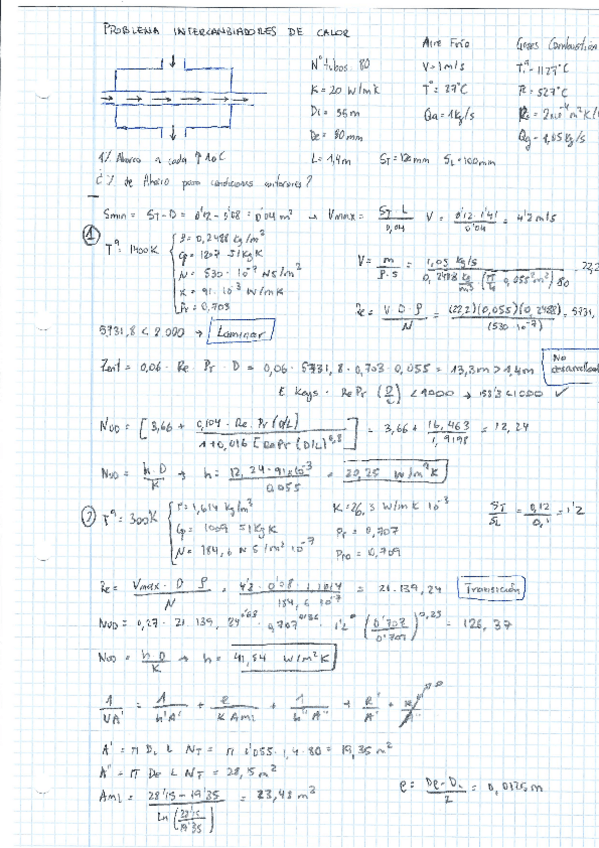 PROBLEMA INTERCAMBIADORES DE CALOR
Aire Frío Gases Combustión
Nº tubos 80 V=1m/s Tª=1127ºC
K=20 W/mK Tª=27ºC Tª=527ºC
Di=55m Qa=1Kg/s m²K/
De=80mm Qg=1,05Kg/s
1% Ahorro a cada ↑10C L=1,4m ST=120mm SL=100mm
¿% de Ahorro para condiciones anteriores?
Smin = ST-D = 0'12-0'08=0'04m² → Vmax= ST·L / 0,04 V = / 0'04 = 4'2m/s
① Tª=1400K
ρ=0,2488 Kg/m³
Cp=1207 J/KgK
N=530·10⁻⁷ NS/m²
K=91·10⁻³ W/mK
Pr=0,703
V= m / ρ·S = 1,05 Kg/s / 0,2488 Kg/m³·(π/4 0,055²m²)80 = 22,2
Re = V D ρ / N = (22,2)(0,055)(0,2488) / (530·10⁻⁷) = 5731,
5731,8 < 8.000 → Laminar
Zent = 0,06·Re·Pr·D = 0,06·5731,8·0,703·0,055 = 13,3m > 1,4m No desarrollado
E Kays · RePr (D/L) < 1000 → 158'3<1000 ✓
NuD = [3,66 + 0,104·Re.Pr(D/L) / 1+0,016[RePr(D/L)^0,8] = 3,66+ 16,463 / 1,9198 = 12,24
NuD = h D / K → h= 12,24·91x10⁻³ / 0,055 = 20,25 W/m²K
② Tª=300K
ρ=1,614 Kg/m³ K=26,3 W/mK 10⁻³ ST/SL = 0,12 / 0,1 = 1'2
Cp=1009 J/KgK Pr=0,707
N=184,6 NS/m² 10⁻⁷ Pro=0,709
Re= Vmax·D ρ / N = 4'2·0'08·1,1614 / 184,6 10⁻⁷ = 21.139,24 Transición
NuD=0,27·21.139,24^0'63·0,707^0'36·1'2⁰ (0'707 / 0'709)^0,25 = 126,37
NuD = h D / K → h= 41,54 W/m²K
1/UA' = 1/h'A' + e/K Aml + 1/h''A'' + R'/A' +
A' = π Di L NT = π 0'055·1,4·80 = 19,35m²
A'' = π De L NT = 28,15m²
Aml = 28'15-19'35 / Ln(28'15 / 19'35) = 23,48m² e= De-Di / 2 = 0,0125m